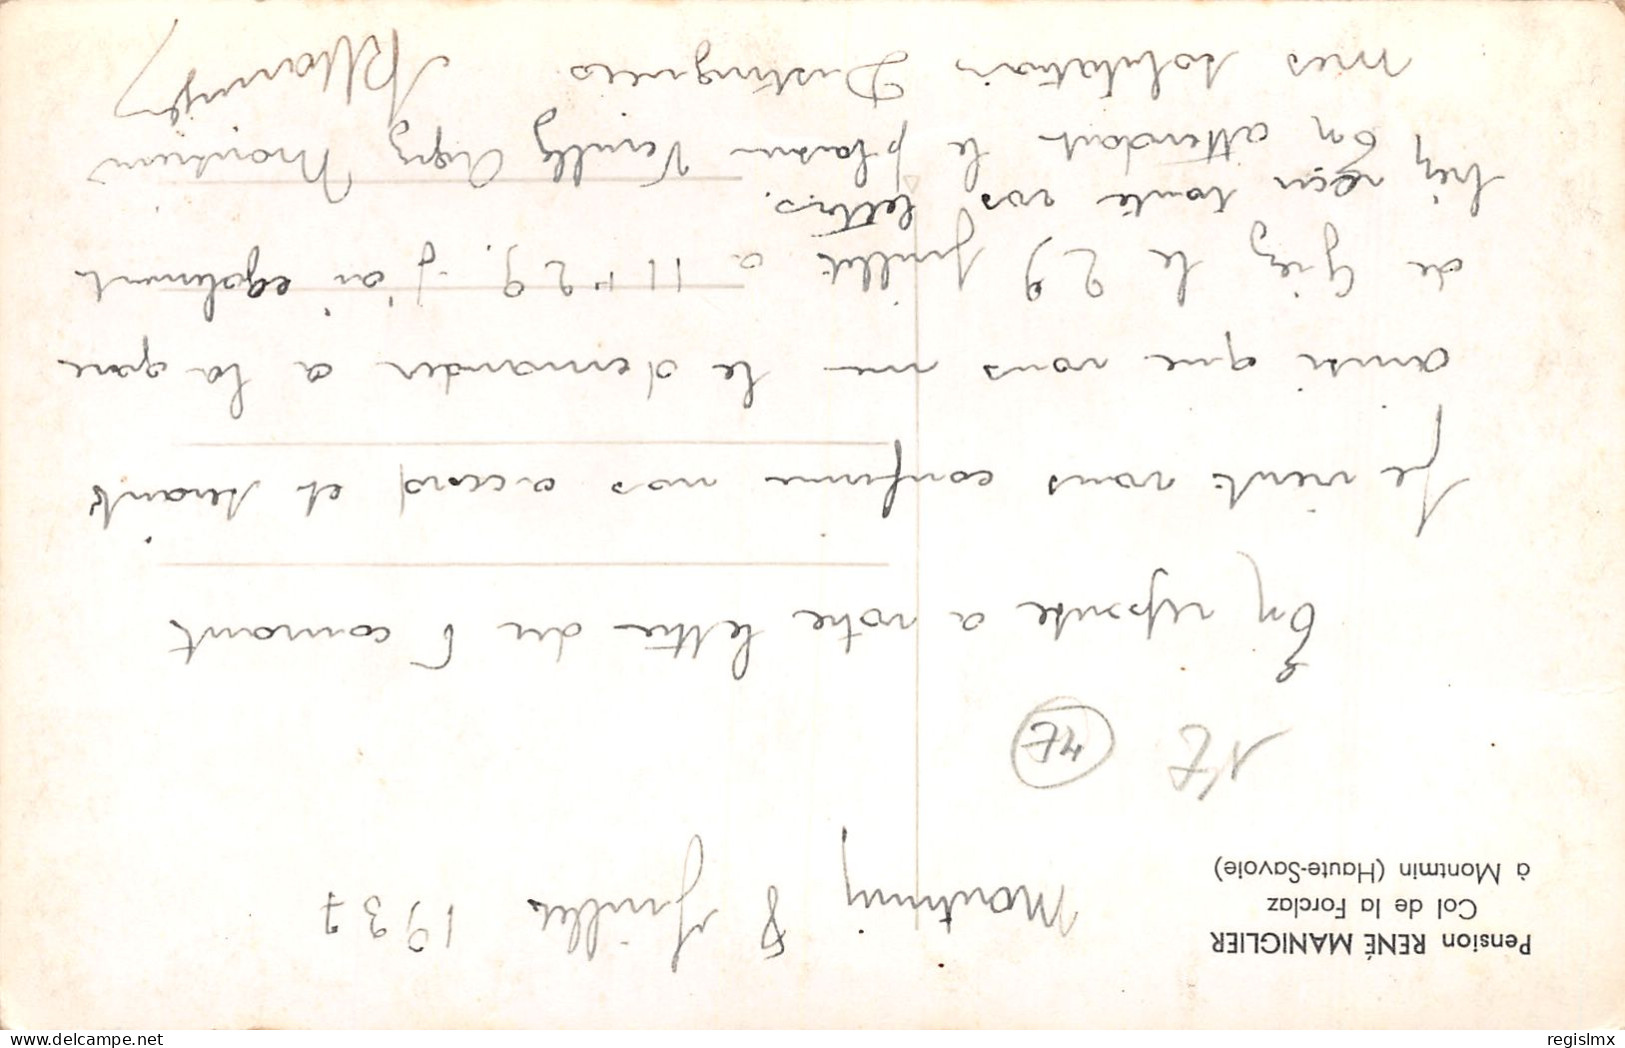 Pension RENÉ MANIGLIER
Col de la Forclaz
à Montmin (Haute-Savoie)
Montmin 8 Juillet 1937
4E
En reponse a votre lettre du 6 courant
Je vient vous confirme nos accord et
ainsi que vous me le demander a la gare
de Giez le 29 Juillet a 11 h 29. J'ai egalement
très reçu toute vos lettrs.
En attendant le plaisir Veuillez Agrez Monsieur
mes salutation Distingués
RManiglier
regislmx